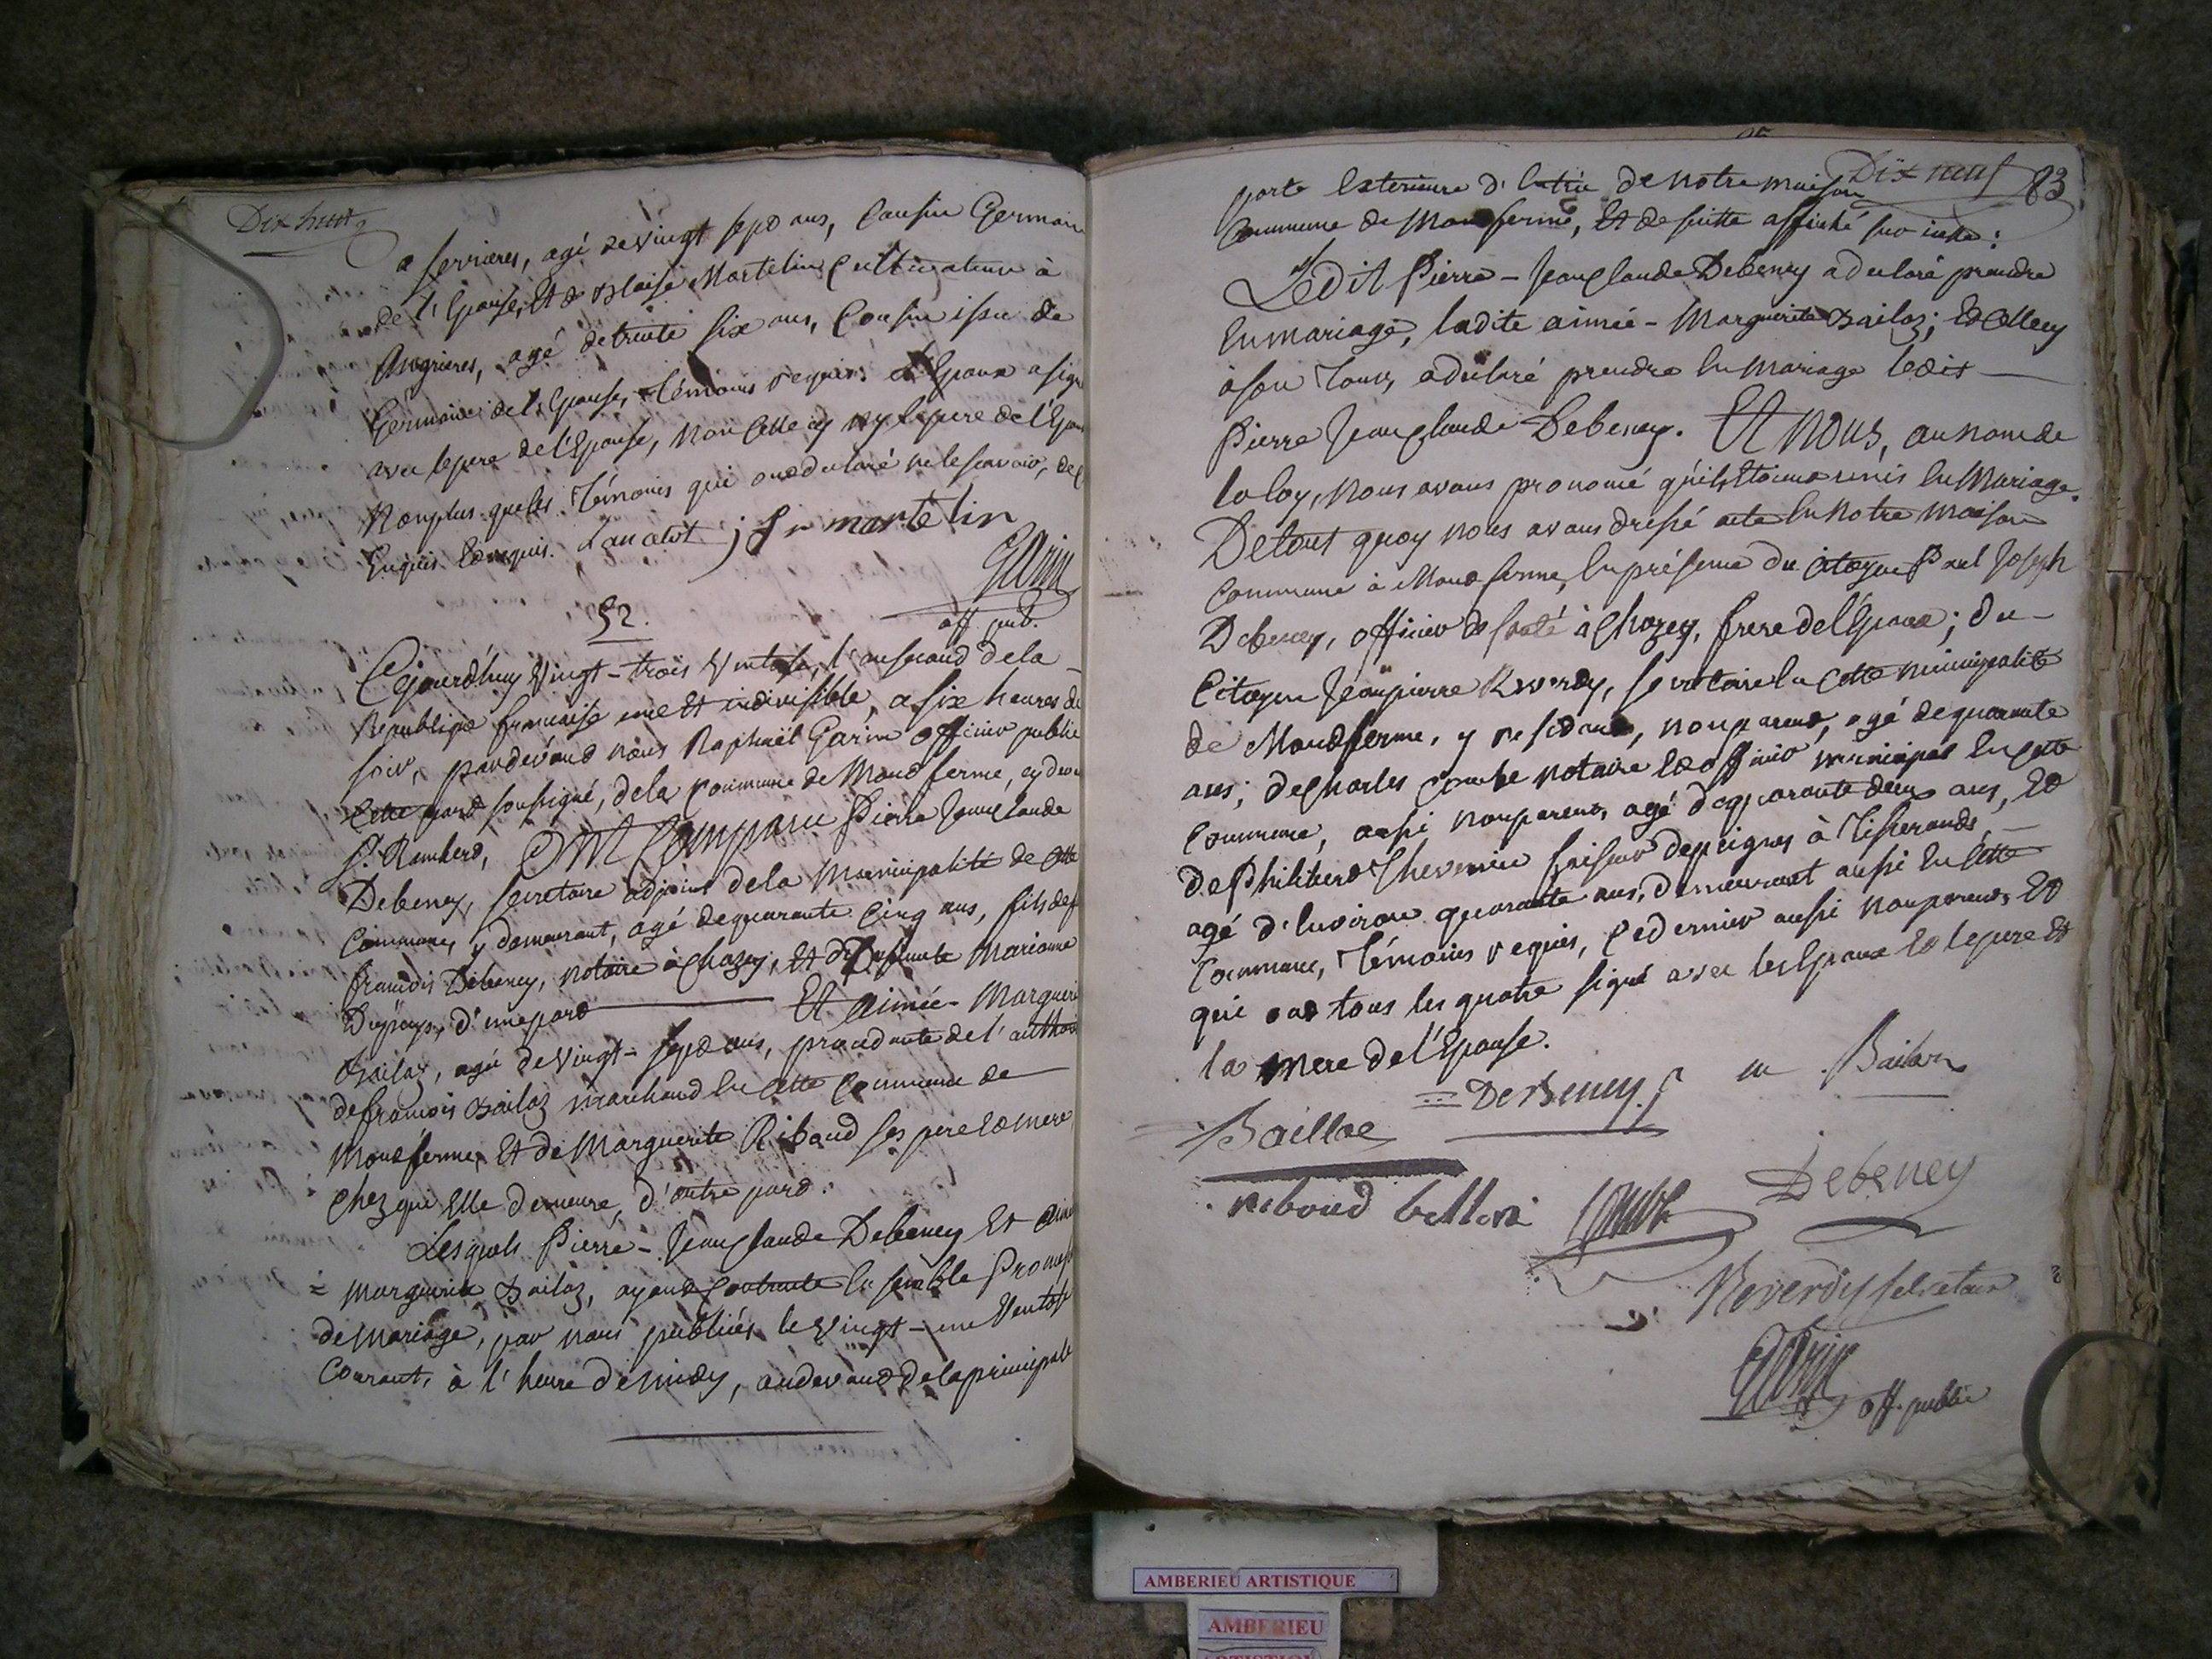 Dix huit
a serrieres, agé de vingt sept ans, Cousin Germain
de l'Epouse, Et de Blaise Martelin Cultivateur à
Angrieres, agé de trente six ans, Cousin issu de
Germain de l'Epouse, Témoins requis. L'Epoux a signé
avec le pere de l'Epouse, non Celle cy ny le pere de l'Epoux
Non plus que les Témoins qui ont declaré ne le scavoir, de ce
Enquis Et requis. j f martelin
Garin
off. pub.
52.
Cejourd'huy Vingt-trois Ventose, l'an second de la
Republique francaise une Et indivisible, a six heures du
soir, pardevand nous Raphaël Garin officier public
soussigné, de la Commune de Mondferme, cy devant
St. Rambert, Ont Comparu Pierre Jean Claude
Debeney, secretaire adjoint de la Municipalité de Cette
Commune, y demeurant, agé de quarante Cinq ans, fils de
francois Debeney, notaire à Chazey, Et de Deffunte Marianne
Dupuys, d'une part Et Aimée-Marguerite
Bailaz, agée de Vingt-sept ans, procedante de l'authorité
de francois Bailaz marchand En Cette Commune de
Mondferme, Et de Marguerite Riboud ses pere Et mere
Chez qui Elle demeure, d'autre part.
Lesquels Pierre-Jean Claude Debeney Et Aimée
= Marguerite Bailaz, ayant Contracté Ensemble Promesse
de Mariage, par nous publiées le Vingt-une Ventose
Courant, à l'heure de midy, au devand de la principale
Dix neuf 83
porte Exterieure d'Entrée de notre maison
Commune de Mondferme, Et de suitte affiché sur icelle:
Ledit Pierre-Jean Claude Debeney a declaré prendre
En mariage, ladite aimée-Marguerite Bailaz; Et Celle cy
à son Tour, a declaré prendre En Mariage ledit
Pierre Jean Claude Debeney. Et Nous, au nom de
la loy, nous avons prononcé qu'ils Etoient unis En Mariage.
De tout quoy nous avons dressé acte En Notre Maison
Commune à Mondferme, En présence du Citoyen Paul Joseph
Debeney, officier de santé à Chazey, frere de l'Epoux; du
Citoyen Jean pierre Reverdy, secretaire En Cette municipalité
de Mondferme, y residant, non parent, agé de quarante
ans; de Charles Combe notaire Et officier municipal En Cette
Commune, aussi non parent, agé de quarante deux ans, Et
de Philibert Thevenin faiseur de peignes à Tisserands,
agé d'Environ quarante ans, demeurant aussi En Cette
Commune, Témoins requis, Ce dernier aussi non parent, Et
qui ont tous les quatre signé avec les Epoux Et le pere Et
la mere de l'Epouse.
DeBeney
Baillac
riboud
Combe
Debeney
Reverdy secretaire
Garin
off. public
AMBERIEU ARTISTIQUE
AMBERIEU